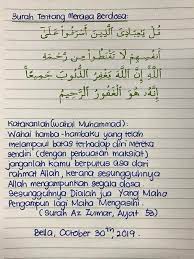 Surah Tentang Merasa Berdosa:
قُلْ يٰعِبَادِيَ الَّذِيْنَ أَسْرَفُوْا عَلَىٰ
أَنْفُسِهِمْ لَا تَقْنَطُوْا مِنْ رَحْمَةِ
اللَّهِ إِنَّ اللَّهَ يَغْفِرُ الذُّنُوْبَ جَمِيْعًا
إِنَّهُ هُوَ الْغَفُوْرُ الرَّحِيْمُ
Katakanlah (wahai Muhammad):
Wahai hamba-hambaku yang telah
melampaui batas terhadap diri mereka
sendiri (dengan perbuatan maksiat)
janganlah kamu berputus asa dari
rahmat Allah, kerana sesungguhnya
Allah mengampunkan segala dosa
Sesungguhnya Dialah jua Yang Maha
Pengampun lagi Maha Mengasihi.
(Surah Az Zumar, Ayat 53)
Bella, October 30th, 2019.